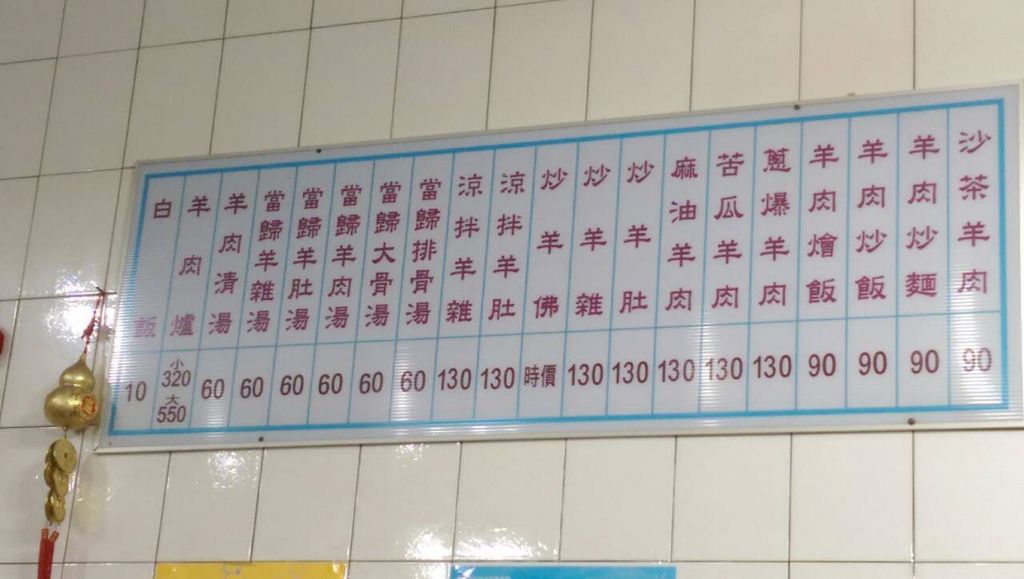 沙茶羊肉 90
羊肉炒麵 90
羊肉炒飯 90
羊肉燴飯 90
蔥爆羊肉 130
苦瓜羊肉 130
麻油羊肉 130
炒羊肚 130
炒羊雜 130
炒羊佛 時價
涼拌羊肚 130
涼拌羊雜 130
當歸排骨湯 60
當歸大骨湯 60
當歸羊肉湯 60
當歸羊肚湯 60
當歸羊雜湯 60
羊肉清湯 60
羊肉爐 小320 大550
白飯 10